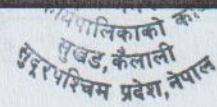 कार्यपालिकाको का
सुखड, कैलाली
सुदूरपश्चिम प्रदेश, नेपाल